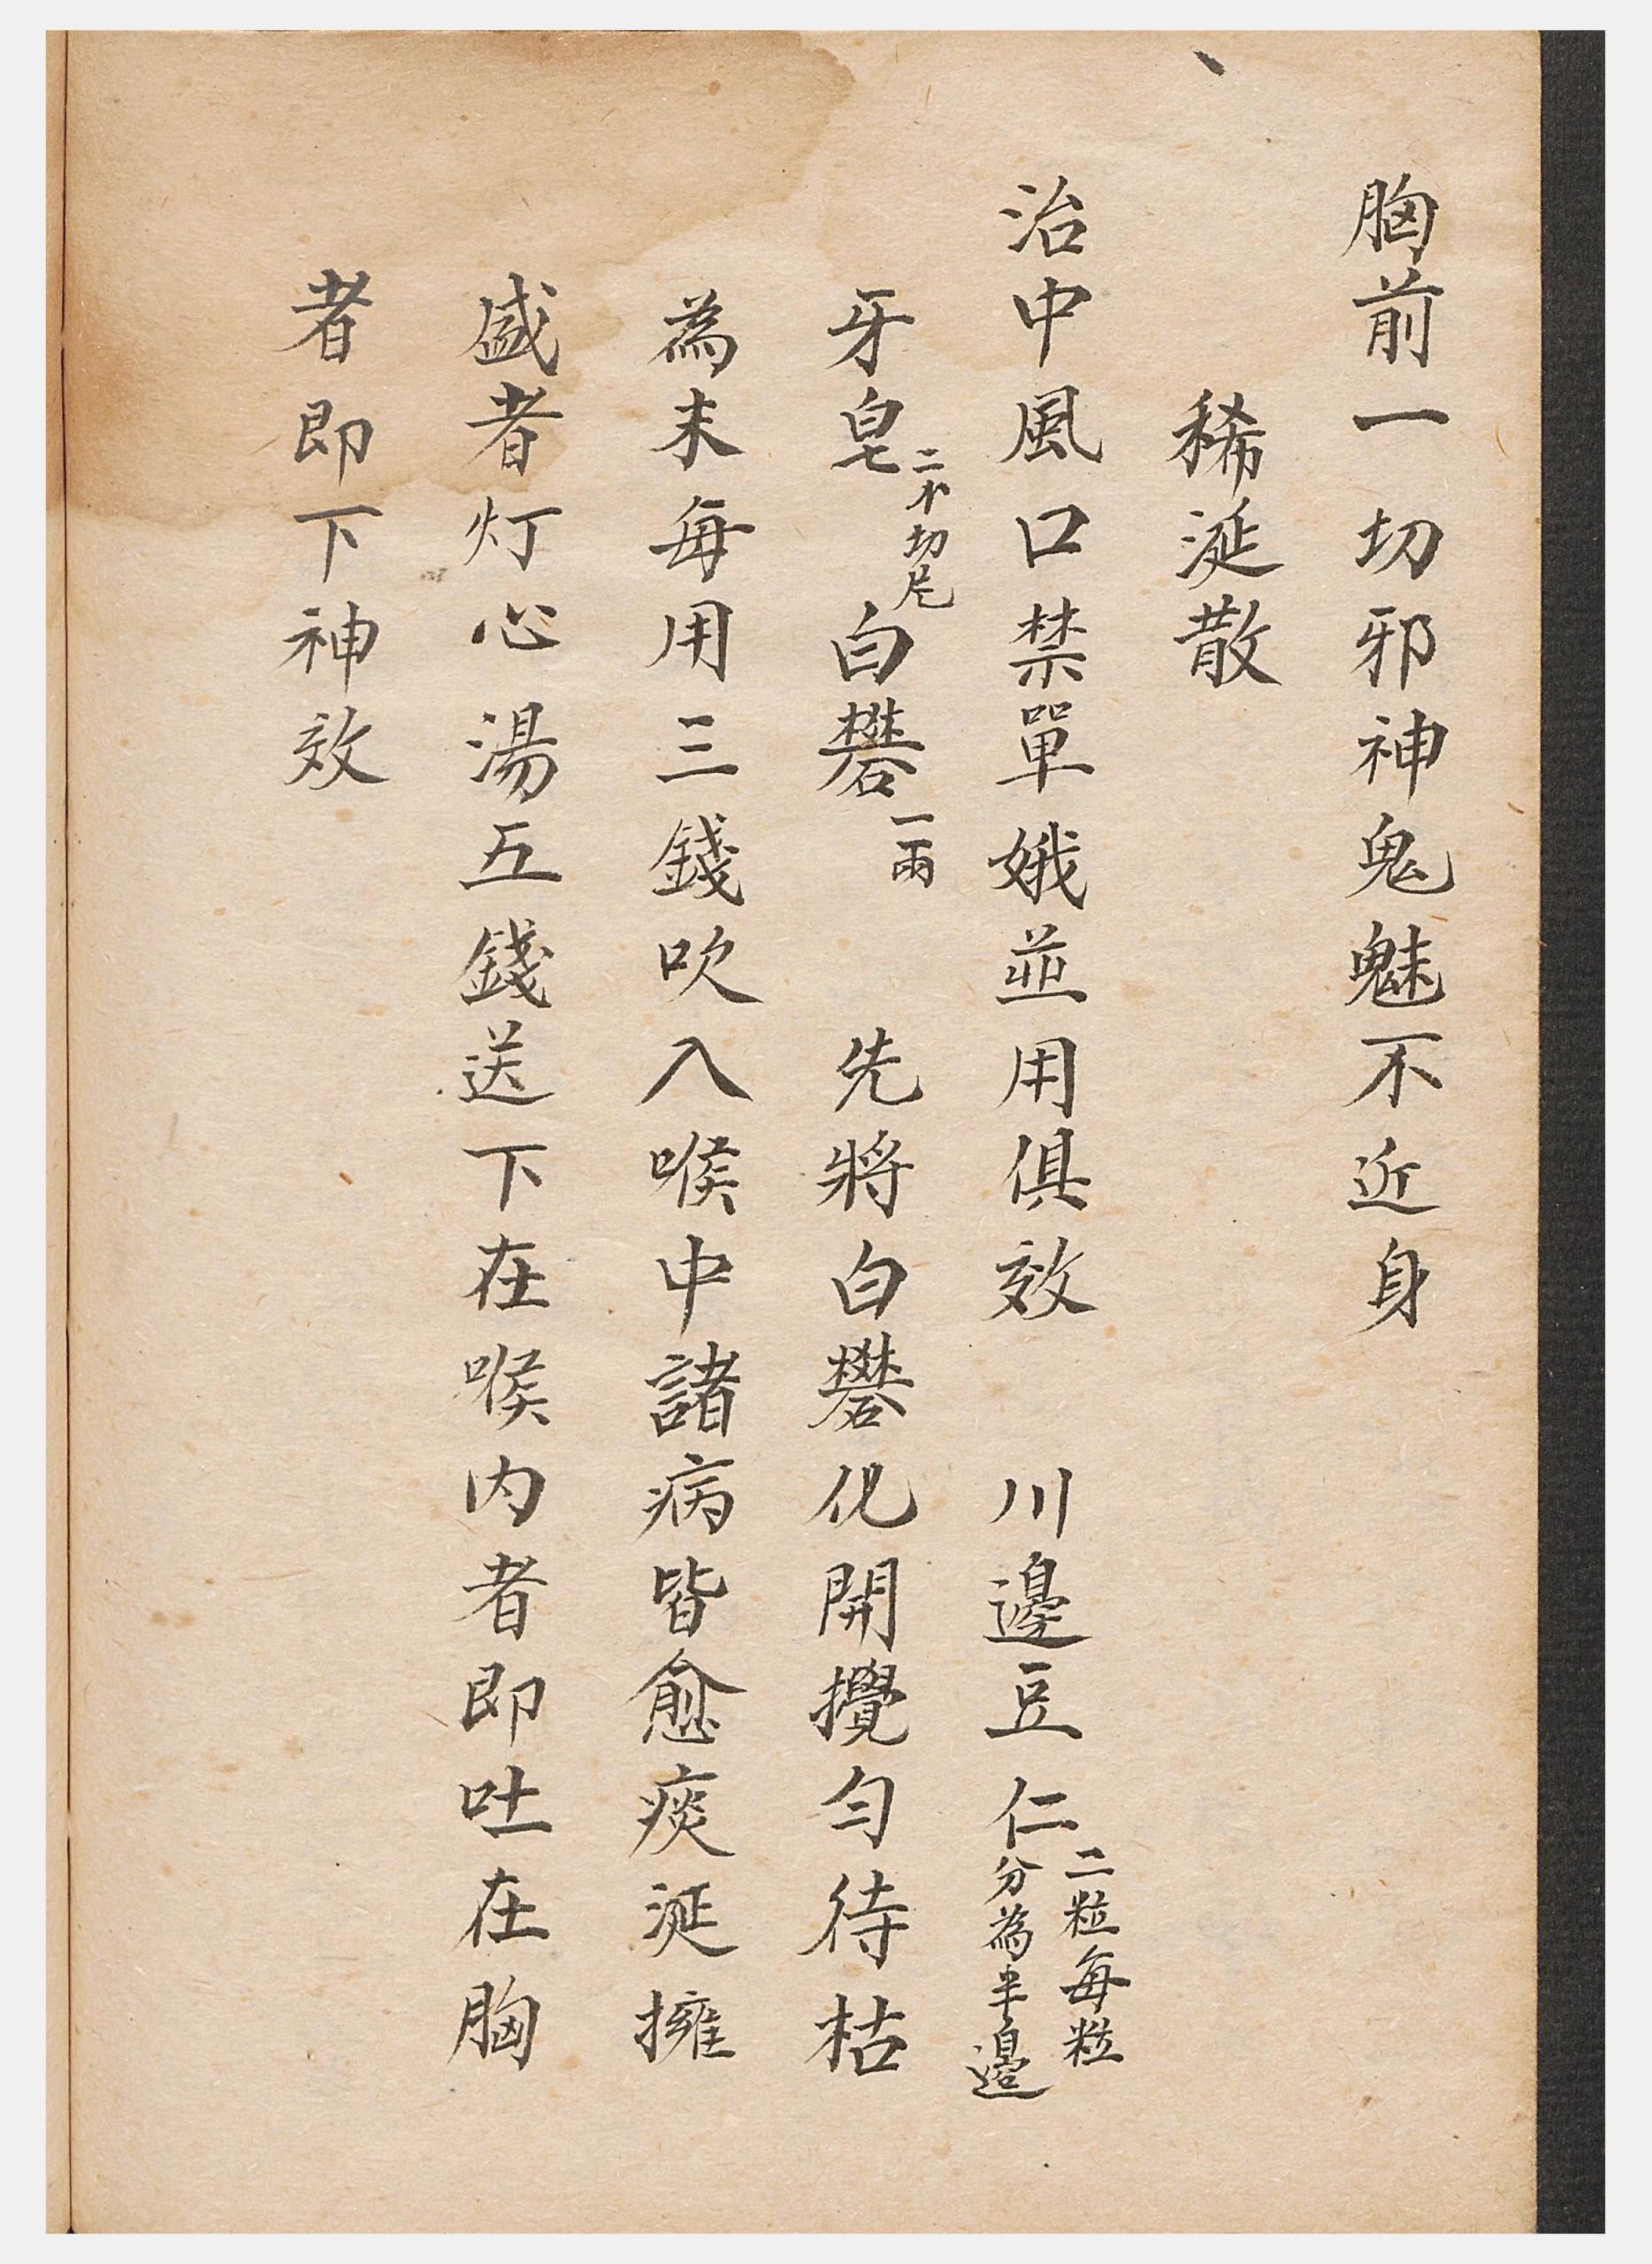 胸前一切邪神鬼魅不近身
稀涎散
治中風口禁單娥並用俱效　川邊豆仁二粒每粒分為半邊
牙皂二錢切片白礬一兩　先將白礬化開攪勻待枯
為末每用三錢吹入喉中諸病皆愈痰涎擁
盛者灯心湯五錢送下在喉内者即吐在胸
者即下神效